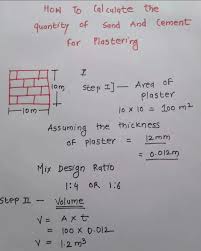 How To Calculate the
quantity of Sand And Cement
for Plastering
Step I] — Area of
plaster
10m
10 x 10 = 100 m²
10m
Assuming the thickness
of plaster = 12mm
= 0.012m
Mix Design Ratio
1:4 OR 1:6
Step II - Volume
V = A x t
= 100 x 0.012
V = 1.2 m³